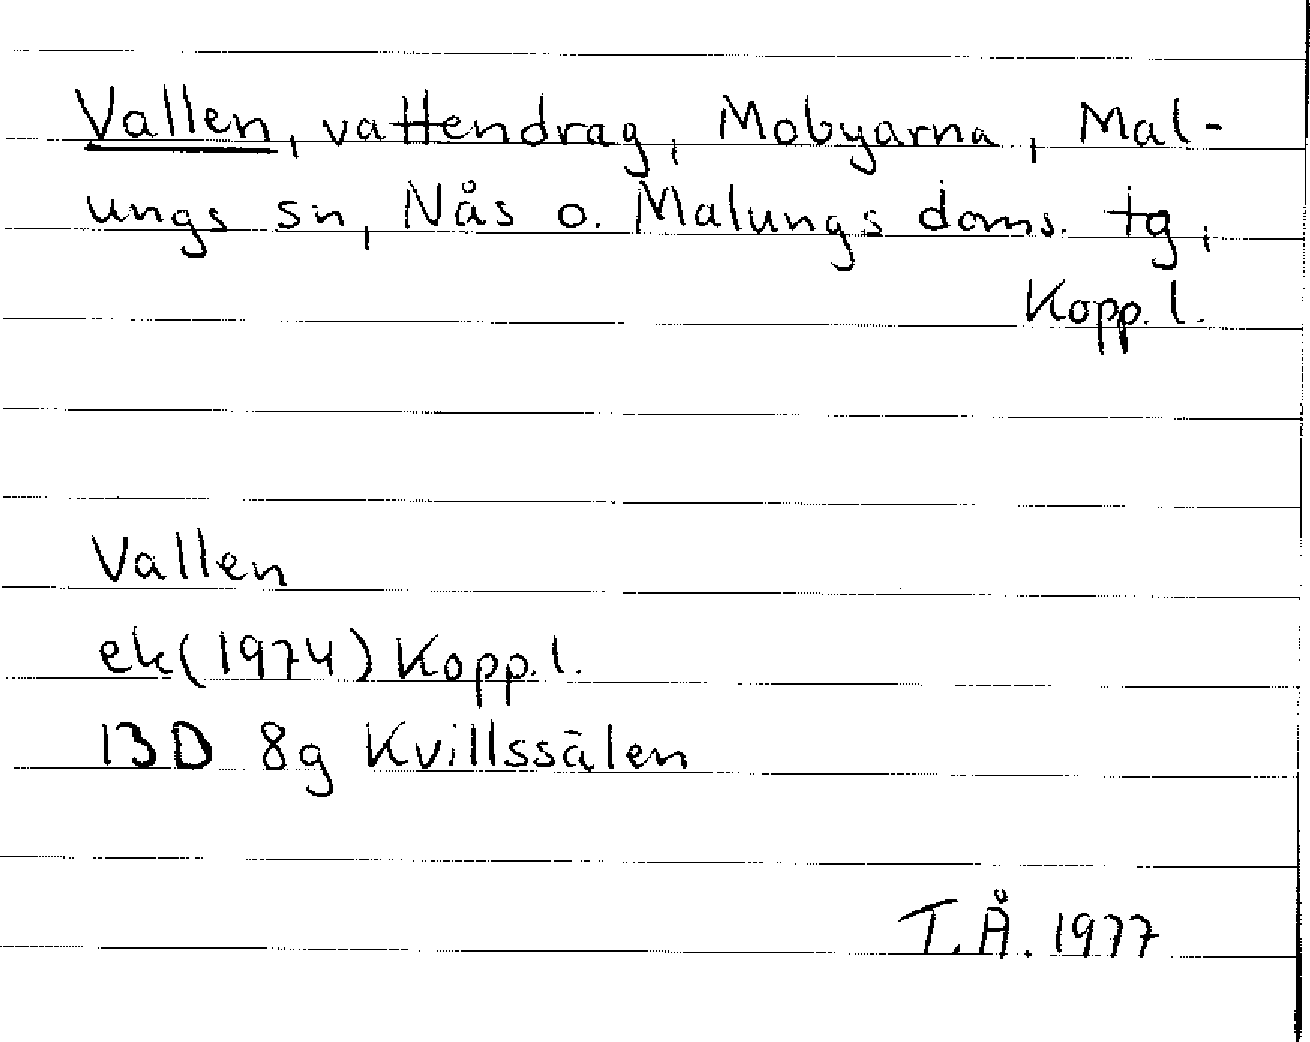 Vallen, vattendrag, Mobyarna, Mal-
ungs sn, Nås o. Malungs doms. tg,
Kopp. l.
Vallen
ek(1974) Kopp. l.
13D 8g Kvillssälen
T.Å. 1977